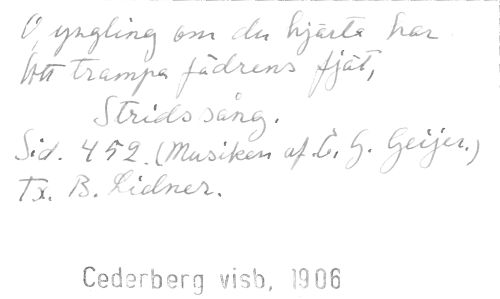 O, yngling om du hjärta har
Att trampa fädrens fjät,
Stridssång.
Sid. 452. (Musiken af E. G. Geijer.)
Tx. B. Lidner.
Cederberg visb, 1906